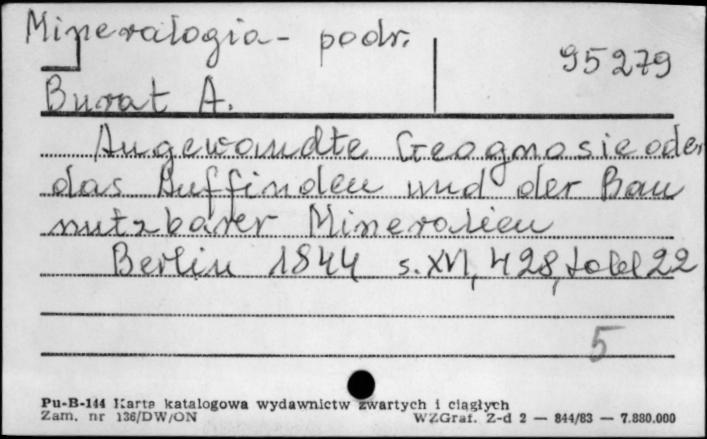 Mineralogia - podr.
95279
Burat A.
Angewandte Geognosie oder
das Auffinden und der Bau
nutzbarer Mineralien
Berlin 1844 s. XVI, 428, tabl 22
5
Pu-B-144 Karta katalogowa wydawnictw zwartych i ciągłych
Zam. nr 136/DW/ON WZGraf. Z-d 2 — 844/83 — 7.880.000